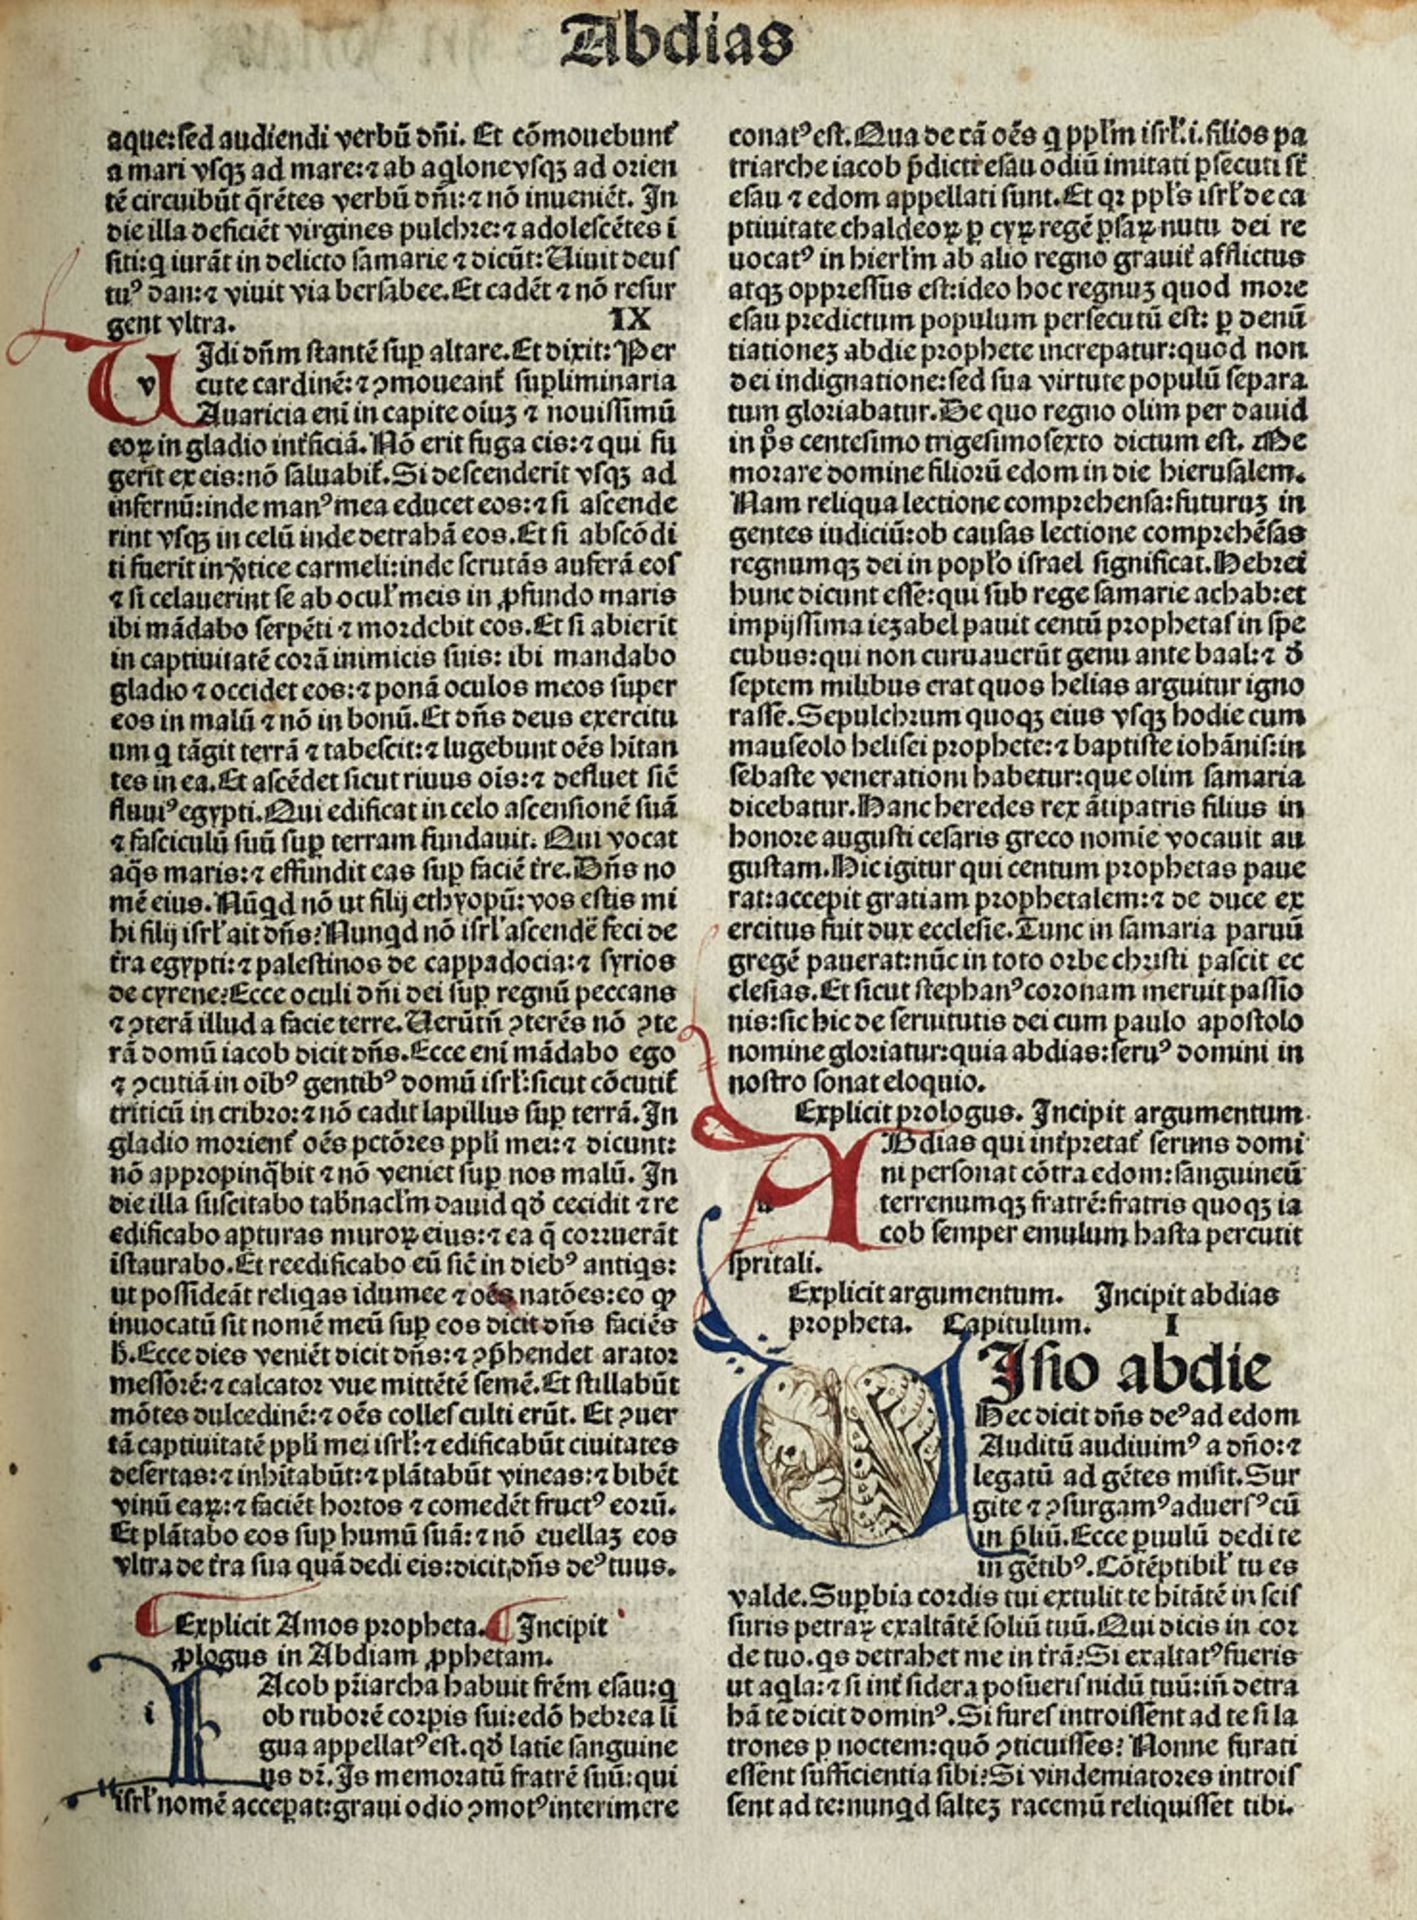 Abdias
aque:sed audiendi verbū dn̄i. Et cōmouebunt᷑
a mari vsqꝫ ad mare:⁊ ab aq̇lone vsqꝫ ad orien
tē circuibūt q̄rētes verbū dn̄i:⁊ nō inueniēt. In
die illa deficiēt virgines pulchre:⁊ adolescētes ī
siti:q̇ iurāt in delicto samarie ⁊ dicūt: Uiuit deus
tuꝰ dan:⁊ viuit via bersabee. Et cadēt ⁊ nō resur
gent vltra. IX
UIdi dn̄m stantē suꝑ altare. Et dixit: Per
cute cardinē:⁊ ꝯmoueant᷑ suꝑliminaria
Auaricia enī in capite oīuꝫ ⁊ nouissimū
eoꝝ in gladio int᷑ficiā. Nō erit fuga eis:⁊ qui fu
gerit ex eis:nō saluabit᷑. Si descenderit vsqꝫ ad
infernū:inde manꝰ mea educet eos:⁊ si ascende
rint vsqꝫ in celū inde detrahā eos. Et si abscōdi
ti fuerit in v̓tice carmeli:inde scrutās auferā eos
⁊ si celauerint se ab ocul᷑ meis in ꝓfundo maris
ibi mādabo serpēti ⁊ mordebit eos. Et si abierīt
in captiuitatē corā inimicis suis: ibi mandabo
gladio ⁊ occidet eos:⁊ ponā oculos meos super
eos in malū ⁊ nō in bonū. Et dn̄s deus exercitu
um q̇ tāgit terrā ⁊ tabescit:⁊ lugebunt oēs hītan
tes in ea. Et ascēdet sicut riuus oīs:⁊ defluet sic̄
fluuiꝰ egypti. Qui edificat in celo ascensionē suā
⁊ fasciculū suū suꝑ terram fundauit. Qui vocat
aq̄s maris:⁊ effundit eas suꝑ faciē t᷑re. Dn̄s no
mē eius. Nūqd nō ut filij ethyopū: vos estis mi
hi filij isrl᷑ ait dn̄s? Nunqd nō isrl᷑ ascendē feci de
t᷑ra egypti:⁊ palestinos de cappadocia:⁊ syrios
de cyrene? Ecce oculi dn̄i dei suꝑ regnū peccans
⁊ ꝯterā illud a facie terre. Uerūtn̄ ꝯterēs nō ꝯte
rā domū iacob dicit dn̄s. Ecce enī mādabo ego
⁊ ꝯcutiā in oībꝰ gentibꝰ domū isrl᷑:sicut cōcutit᷑
triticū in cribro:⁊ nō cadit lapillus suꝑ terrā. In
gladio morient᷑ oēs pctōres ppl̄i mei:⁊ dicunt:
nō appropinq̄bit ⁊ nō veniet suꝑ nos malū. In
die illa suscitabo tab̄nacl᷑m dauid qd̄ cecidit ⁊ re
edificabo aꝑturas muroꝝ eius:⁊ ea q̄ corruerāt
īstaurabo. Et reedificabo eū sic̄ in diebꝰ antiq̇s:
ut possideāt reliq̇as idumee ⁊ oēs natōes:eo ꝙ
inuocatū sit nomē meū suꝑ eos dicit dn̄s faciēs
h̄. Ecce dies veniēt dicit dn̄s:⁊ ꝯp̄hendet arator
messorē:⁊ calcator vue mittētē semē. Et stillabūt
mōtes dulcedinē:⁊ oēs colles culti erūt. Et ꝯuer
tā captiuitatē ppl̄i mei isrl᷑:⁊ edificabūt ciuitates
desertas:⁊ inhītabūt:⁊ plātabūt vineas:⁊ bibēt
vinū eaꝝ:⁊ faciēt hortos ⁊ comedēt fructꝰ eorū.
Et plātabo eos suꝑ humū suā:⁊ nō euellaꝫ eos
vltra de t᷑ra sua quā dedi eis:dicit dn̄s deꝰ tuus.
Explicit Amos propheta. Incipit
ꝓlogus in Abdiam ꝓphetam.
IAcob pr̄iarcha habuit fr̄em esau:q̇
ob ruborē corꝑis sui:edō hebrea lī
gua appellatꝰ est. qd̄ latīe sanguine
us dr̄. Is memoratū fratrē suū:qui
isrl᷑ nomē acceꝑat:graui odio ꝯmotꝰ interimere
conatꝰ est. Qua de cā oēs q̇ ppl᷑m isrl᷑.i.filios pa
triarche iacob p̄dicti esau odiū imitati ꝑsecuti st̄
esau ⁊ edom appellati sunt. Et qꝛ ppl᷑s isrl᷑ de ca
ptiuitate chaldeoꝝ ꝑ cyꝝ regē ꝑsaꝝ nutu dei re
uocatꝰ in hierl᷑m ab alio regno grauit᷑ afflictus
atqꝫ oppressus est:ideo hoc regnuꝫ quod more
esau predictum populum persecutū est: ꝑ denū
tiationeꝫ abdie prophete increpatur:quod non
dei indignatione:sed sua virtute populū separa
tum gloriabatur. De quo regno olim per dauid
in ps̄ centesimo trigesimo sexto dictum est. Me
morare domine filiorū edom in die hierusalem.
Nam reliqua lectione comprehensa:futuruꝫ in
gentes iudiciū:ob causas lectione comprehēsas
regnumqꝫ dei in popl᷑o israel significat. Hebrei
hunc dicunt esse:qui sub rege samarie achab:et
impijssima iezabel pauit centū prophetas in spe
cubus:qui non curuauerūt genu ante baal:⁊ d̄
septem milibus erat quos helias arguitur igno
rasse. Sepulchrum quoqꝫ eius vsqꝫ hodie cum
mauseolo helisei prophete:⁊ baptiste iohānis:in
sebaste veneratione habetur:que olim samaria
dicebatur. Hanc heredes rex ātipatris filius in
honore augusti cesaris greco nomīe vocauit au
gustam. Hic igitur qui centum prophetas paue
rat:accepit gratiam prophetalem:⁊ de duce ex
ercitus fuit dux ecclesie. Tunc in samaria paruū
gregē pauerat:nūc in toto orbe christi pascit ec
clesias. Et sicut stephanꝰ coronam meruit passio
nis:sic hic de seruitutis dei cum paulo apostolo
nomine gloriatur:quia abdias:seruꝰ domini in
nostro sonat eloquio.
Explicit prologus. Incipit argumentum
ABdias qui int᷑pretat᷑ seruus domi
ni personat cōtra edom:sanguineū
terrenumqꝫ fratrē:fratris quoqꝫ ia
cob semper emulum hasta percutit
spritali.
Explicit argumentum. Incipit abdias
propheta. Capitulum. I
UIsio abdie
Hec dicit dn̄s deꝰ ad edom
Auditū audiuimꝰ a dn̄o:⁊
legatū ad gētes misit. Sur
gite ⁊ ꝯsurgamꝰ aduersꝰ eū
in p̄liū. Ecce ꝑuulū dedi te
in gētibꝰ. Cōtēptibil᷑ tu es
valde. Suꝑbia cordis tui extulit te hītātē in scis
suris petraꝝ exaltātē soliū tuū. Qui dicis in cor
de tuo. q̇s detrahet me in t᷑rā? Si exaltatꝰ fueris
ut aq̇la:⁊ si int᷑ sidera posueris nidū tuū:in̄ detra
hā te dicit dominꝰ. Si fures introissent ad te si la
trones ꝑ noctem:quō ꝯticuisses? Nonne furati
essent sufficientia sibi? Si vindemiatores introis
sent ad te:nunqd salteꝫ racemū reliquissēt tibi.